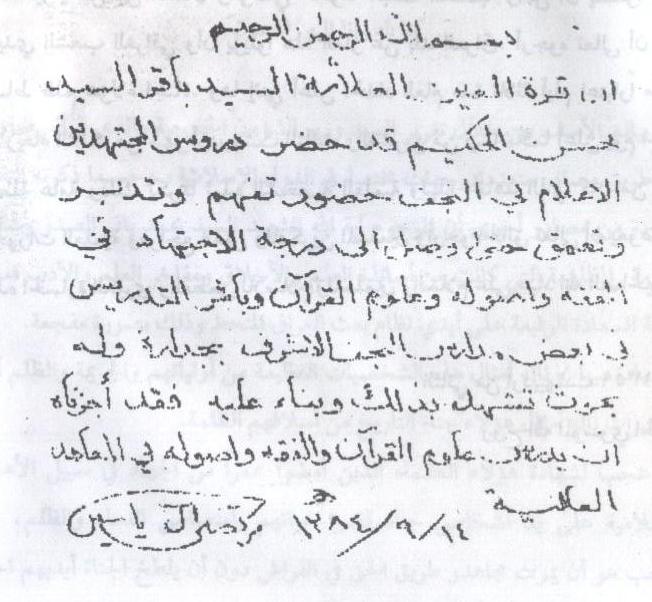 بسم الله الرحمن الرحيم
ان قرة العين العلامة السيد باقر السيد
محسن الحكيم قد حضر دروس المجتهدين
الاعلام في النجف حضور تفهم وتدبر
وتعمق حتى وصل الى درجة الاجتهاد في
الفقه واصوله وعلوم القرآن وباشر التدريس
في النجف الاشرف بجدارة وله
بحوث تشهد بذلك وبناء عليه فقد أجزناه
ان يدرس علوم القرآن والفقه واصوله في المعاهد
العالية
١٤/٩/١٣٨٤ هـ
مرتضى آل ياسين